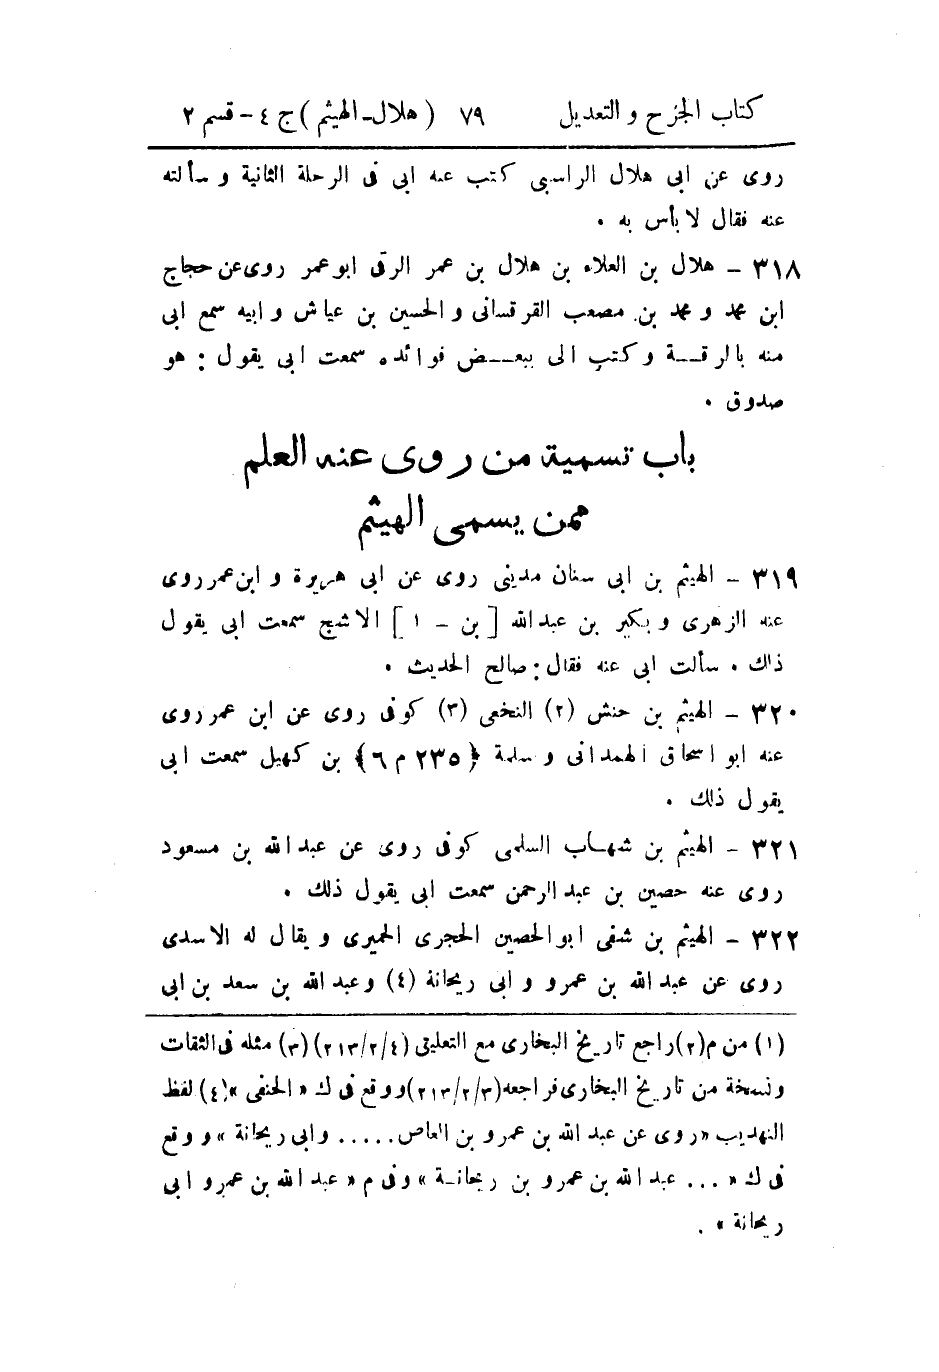 كتاب الجرح و التعديل ٧٩ ( هلال - الهيثم ) ج ٤ - قسم ٢
روى عن ابى هلال الراسبى كتب عنه ابى فى الرحلة الثانية و سألته
عنه فقال لا بأس به .
٣١٨ - هلال بن العلاء بن هلال بن عمر الرقى ابو عمر روى عن حجاج
ابن محمد و محمد بن مصعب القرقسانى و الحسين بن عياش و ابيه سمع ابى
منه بالرقـــة و كتب الى ببعـــض فوائده سمعت ابى يقول : هو
صدوق .
باب تسمية من روى عنه العلم
ممن يسمى الهيثم
٣١٩ - الهيثم بن ابى سنان مدينى روى عن ابى هريرة و ابن عمر روى
عنه الزهرى و بكير بن عبد الله [ بن - ١ ] الاشج سمعت ابى يقول
ذلك . سألت ابى عنه فقال : صالح الحديث .
٣٢٠ - الهيثم بن حنش (٢) النخعى (٣) كوفى روى عن ابن عمر روى
عنه ابو اسحاق الهمدانى و سلمة { ٢٣٥ م ٦ } بن كهيل سمعت ابى
يقول ذلك .
٣٢١ - الهيثم بن شهـاب السلمى كوفى روى عن عبد الله بن مسعود
روى عنه حصين بن عبد الرحمن سمعت ابى يقول ذلك .
٣٢٢ - الهيثم بن شفى ابو الحصين الحجرى الحميرى و يقال له الاسدى
روى عن عبد الله بن عمرو و ابى ريحانة (٤) و عبد الله بن سعد بن ابى
(١) من م (٢) راجع تاريخ البخارى مع التعليق (٢١٣/٢/٤) (٣) مثله فى الثقات
و نسخة من تاريخ البخارى فراجعه (٢١٣/٢/٣) و وقع فى ك « الحنفى » (٤) لفظ
التهذيب « روى عن عبد الله بن عمرو بن العاص ..... و ابى ريحانة » و وقع
فى ك « ... عبد الله بن عمرو بن ريحانـة » و فى م « عبد الله بن عمرو ابى
ريحانة » .